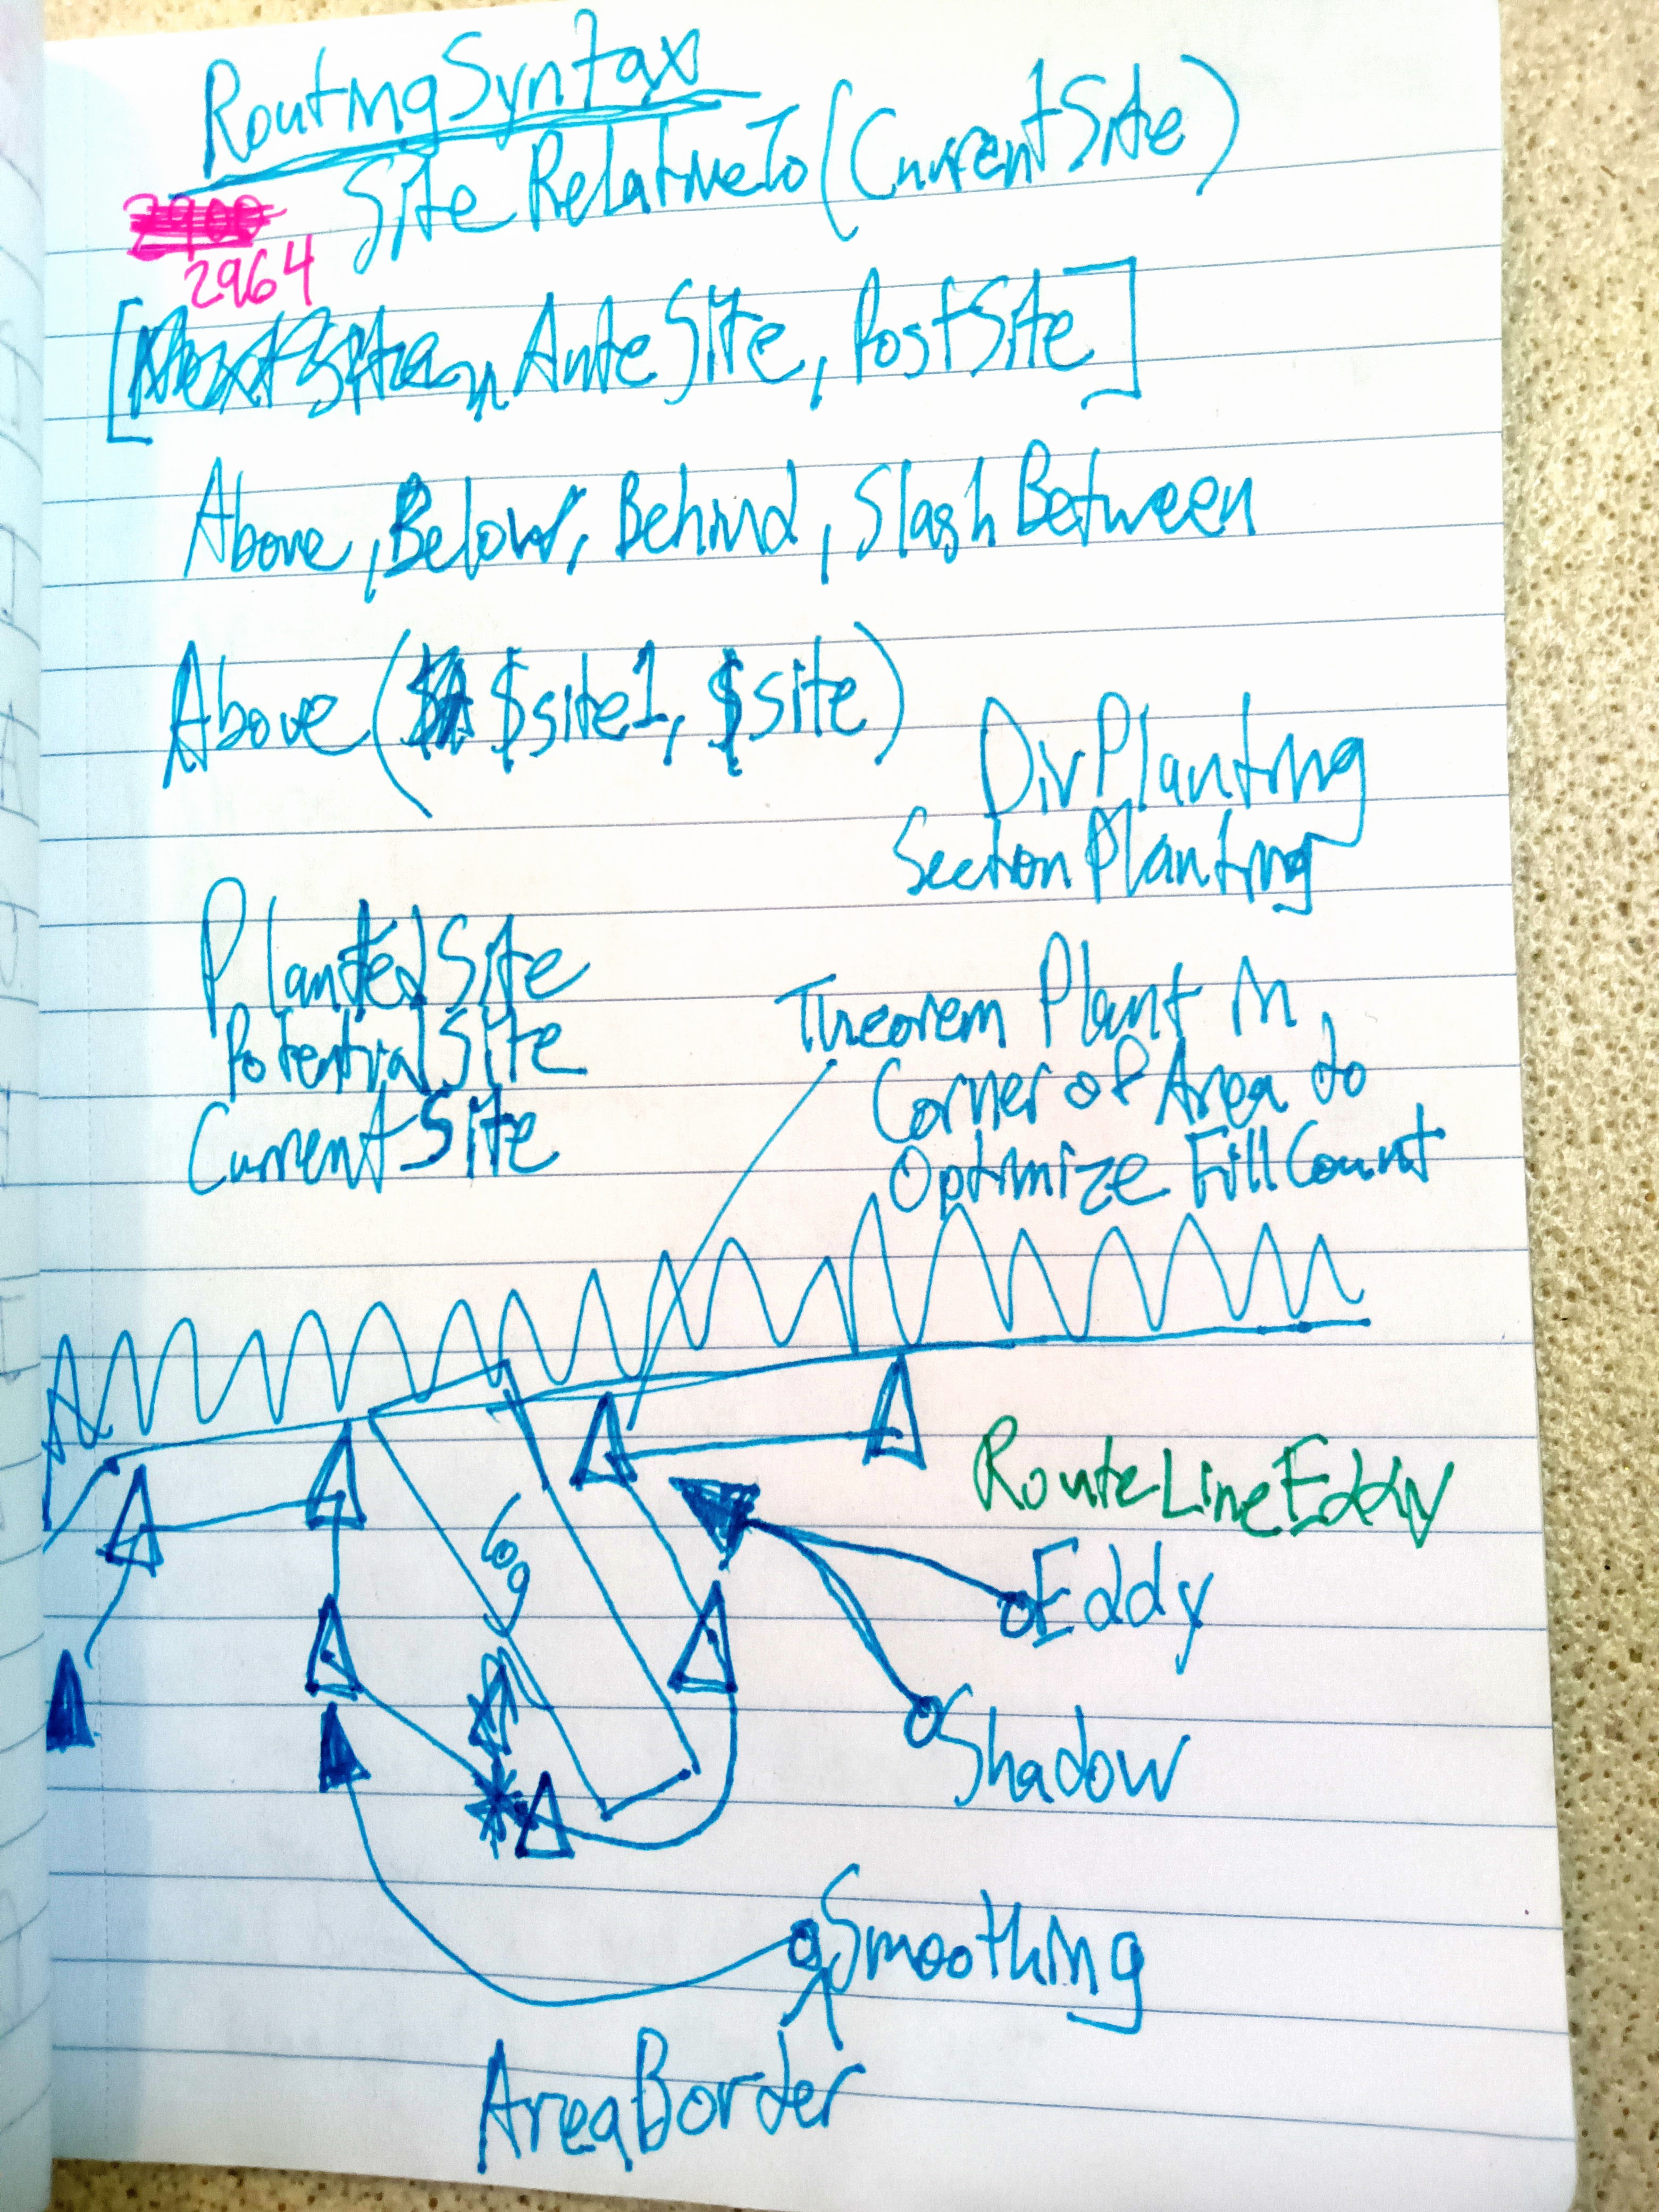 RoutingSyntax
Site RelativeTo (CurrentSite)
2964
[AnteSite, PostSite]
Above, Below, Behind, Slash Between
Above ($site1, $site)
DivPlanting
SectionPlanting
PlantedSite
PotentialSite
CurrentSite
Theorem Plant in
Corner of Area to
Optimize FillCount
RouteLineEddy
Log
Eddy
Shadow
Smoothing
AreaBorder